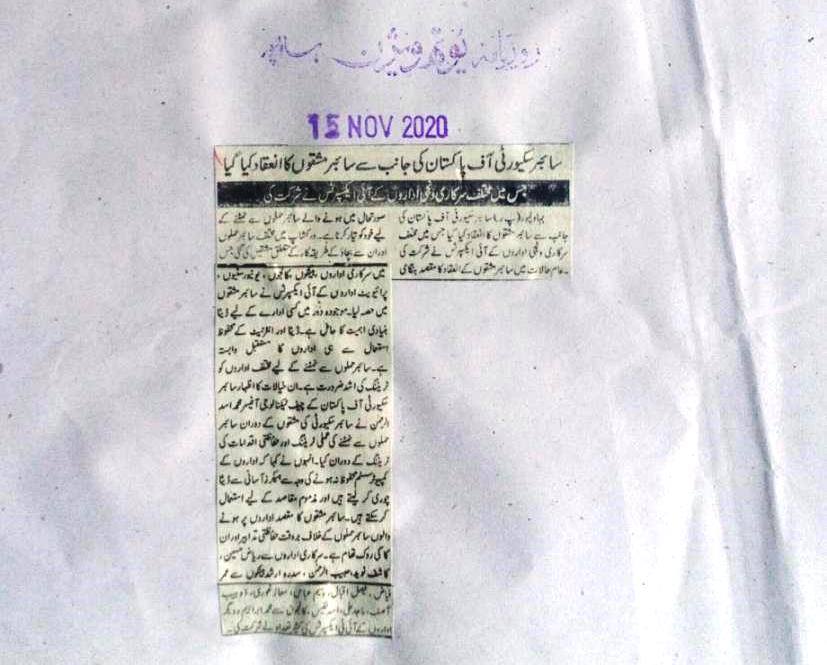 روزنامہ یوتھ ویژن بہاولپور
15 NOV 2020
سائبر سکیورٹی آف پاکستان کی جانب سے سائبر مشقوں کا انعقاد کیا گیا
جس میں مختلف سرکاری ونجی اداروں کے آئی ایکسپرٹس نے شرکت کی
بہاولپور(پ ر)سائبر سکیورٹی آف پاکستان کی
جانب سے سائبر مشقوں کا انعقاد کیا گیا جس میں مختلف
سرکاری ونجی اداروں کے آئی ایکسپرٹس نے شرکت کی
۔عام حالات میں سائبر مشقوں کے انعقاد کا مقصد ہنگامی
صورتحال میں ہونے والے سائبر حملوں سے نمٹنے کے
لیے خود کو تیار کرنا ہے۔ورکشاپ میں مختلف سائبر حملوں
اور ان سے بچاؤ کے طریقہ کار کے متعلق مشقیں کی گئی جس
میں سرکاری اداروں، بینکوں، کالجوں، یونیورسٹیوں،
پرائیویٹ اداروں کے آئی ایکسپرٹس نے سائبر مشقوں
میں حصہ لیا۔موجودہ دور میں کسی ادارے کے لیے ڈیٹا
بنیادی اہمیت کا حامل ہے۔ڈیٹا اور انٹرنیٹ کے محفوظ
استعمال سے ہی اداروں کا مستقبل وابستہ
ہے۔سائبر حملوں سے نمٹنے کے لیے مختلف اداروں کو
ٹریننگ کی اشد ضرورت ہے۔ان خیالات کا اظہار سائبر
سکیورٹی آف پاکستان کے چیف ٹیکنالوجی آفیسر محمد اسد
الرحمن نے سائبر سکیورٹی کی مشقوں کے دوران سائبر
حملوں سے نمٹنے کی عملی ٹریننگ اور حفاظتی اقدامات کی
ٹریننگ کے دوران کیا۔انہوں نے کہا کہ اداروں کے
کمپیوٹر سسٹم محفوظ نہ ہونے کی وجہ سے ہیکرز آسانی سے ڈیٹا
چوری کر لیتے ہیں اور مذموم مقاصد کے لیے استعمال
کر سکتے ہیں۔سائبر مشقوں کا مقصد اداروں پر ہونے
والوں سائبر حملوں کے خلاف بروقت حفاظتی تدابیر اور ان
کا کی روک تھام ہے۔سرکاری اداروں سے ریاض حسین،
کاشف نوید، حبیب الرحمن، سدرہ ارشد بینکوں سے عمر
فیاض، فیصل اقبال، وسیم عباس، معاذ غوری،
آصف، ماجد علی، اسد نفیس، کالجوں سے محمد ابراہیم ودیگر
اداروں کے آئی ٹی ایکسپرٹس کی کثیر تعداد نے شرکت کی۔